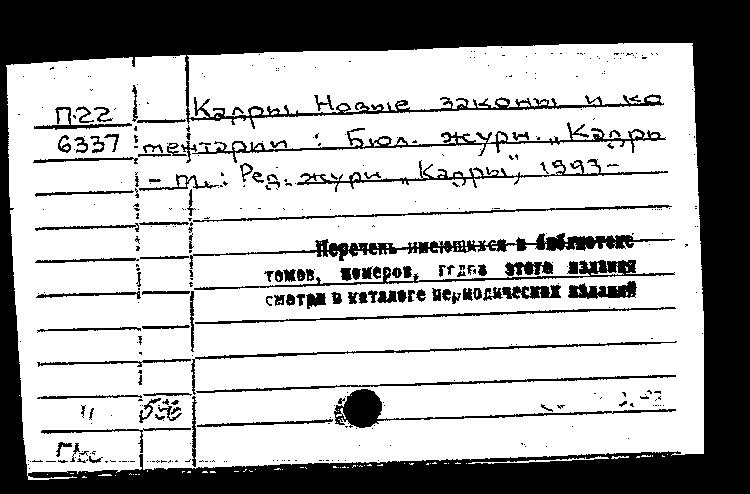 П22
6337
Кадры. Новые законы и ко
ментарии : Бюл. журн. „Кадры
- м.: Ред. журн „Кадры", 1993-
Перечень имеющихся в библиотеке
томов, номеров, годов этого издания
смотри в каталоге периодических изданий
11 536